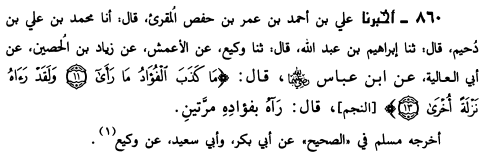 ٨٦٠ - أخبرنا علي بن أحمد بن عمر بن حفص المقرئ، قال: أنا محمد بن علي بن
دُحيم، قال: ثنا إبراهيم بن عبد الله، قال: ثنا وكيع، عن الأعمش، عن زياد بن الحصين، عن
أبي العالية، عن ابن عباس ﵁، قال: ﴿مَا كَذَبَ ٱلْفُؤَادُ مَا رَأَىٰٓ ﴿١١﴾ وَلَقَدْ رَءَاهُ
نَزْلَةً أُخْرَىٰ ﴿١٣﴾﴾ [النجم]، قال: رَآهُ بفؤادِهِ مرَّتينِ.
أخرجه مسلم في «الصحيح» عن أبي بكر، وأبي سعيد، عن وكيع(١).